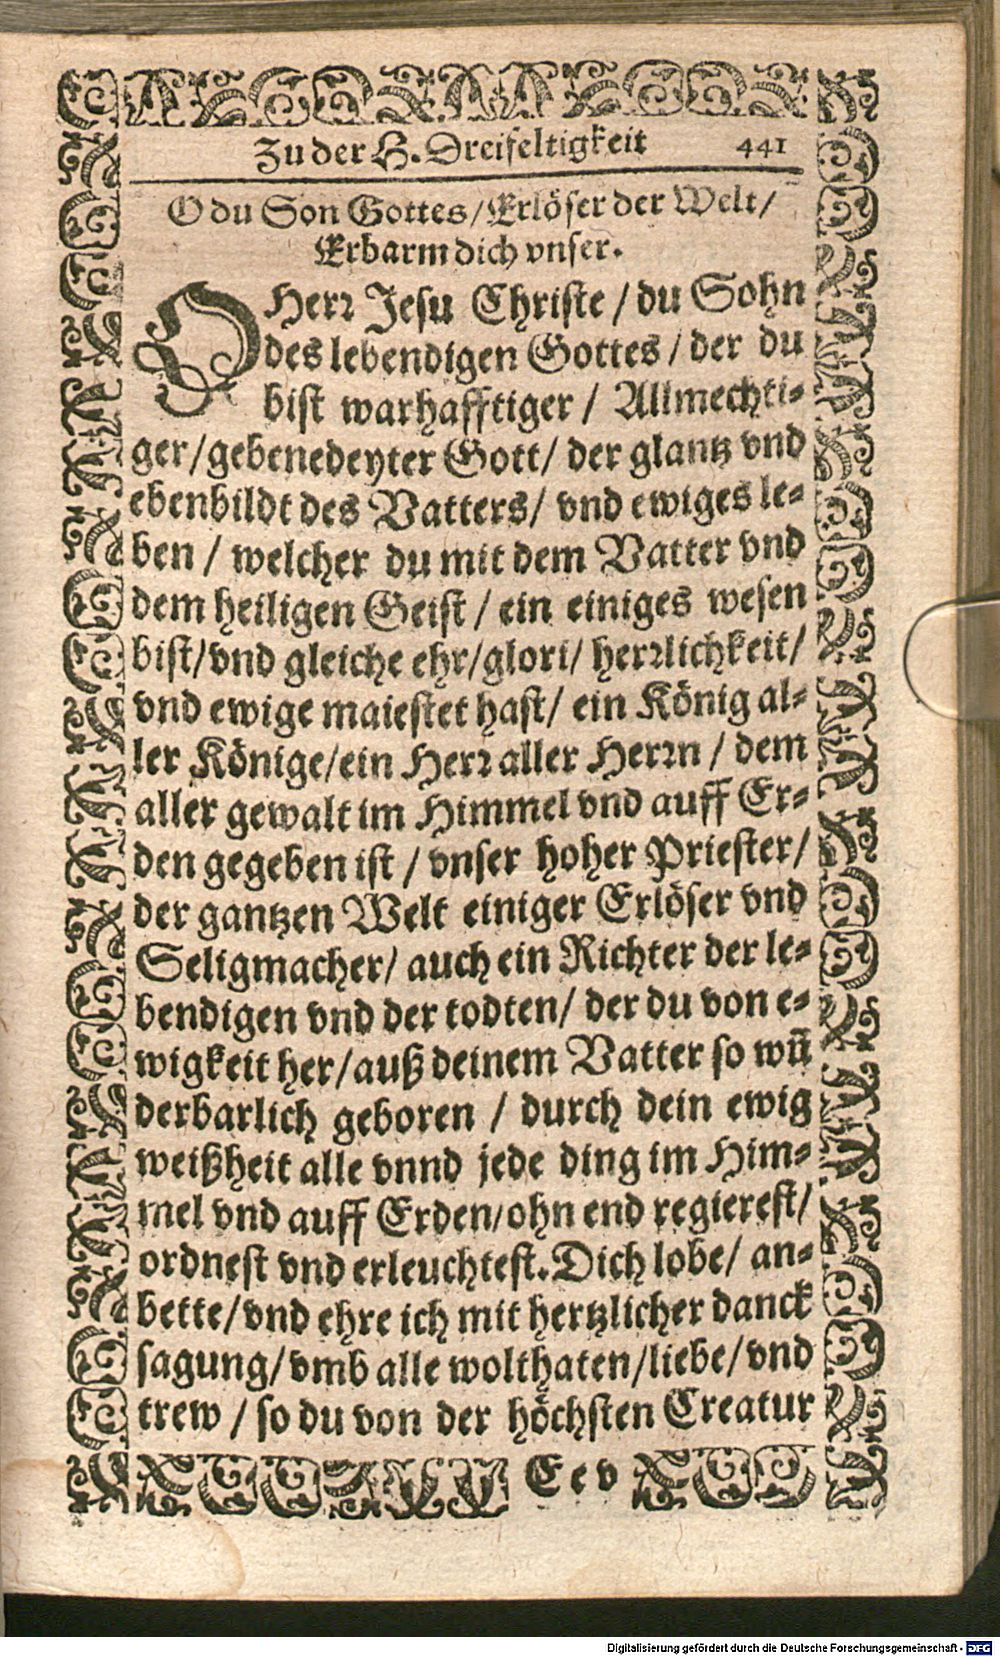 Zu der H. Dreifeltigkeit 441
O du Son Gottes/Erlöser der Welt/
Erbarm dich vnser.
O Herr Jesu Christe / du Sohn
des lebendigen Gottes / der du
bist warhafftiger / Allmechti-
ger/gebenedeyter Gott/ der glantz vnd
ebenbildt des Vatters/ vnd ewiges le-
ben / welcher du mit dem Vatter vnd
dem heiligen Geist / ein einiges wesen
bist/vnd gleiche ehr/glori/ herrlichkeit/
vnd ewige maiestet hast/ ein König al-
ler Könige/ein Herr aller Herrn / dem
aller gewalt im Himmel vnd auff Er-
den gegeben ist / vnser hoher Priester/
der gantzen Welt einiger Erlöser vnd
Seligmacher/ auch ein Richter der le-
bendigen vnd der todten/ der du von e-
wigkeit her/auß deinem Vatter so wū
derbarlich geboren / durch dein ewig
weißheit alle vnnd jede ding im Him-
mel vnd auff Erden/ohn end regierest/
ordnest vnd erleuchtest. Dich lobe/ an-
bette/vnd ehre ich mit hertzlicher danck
sagung/vmb alle wolthaten/liebe/vnd
trew / so du von der höchsten Creatur
E e v
Digitalisierung gefördert durch die Deutsche Forschungsgemeinschaft - DFG